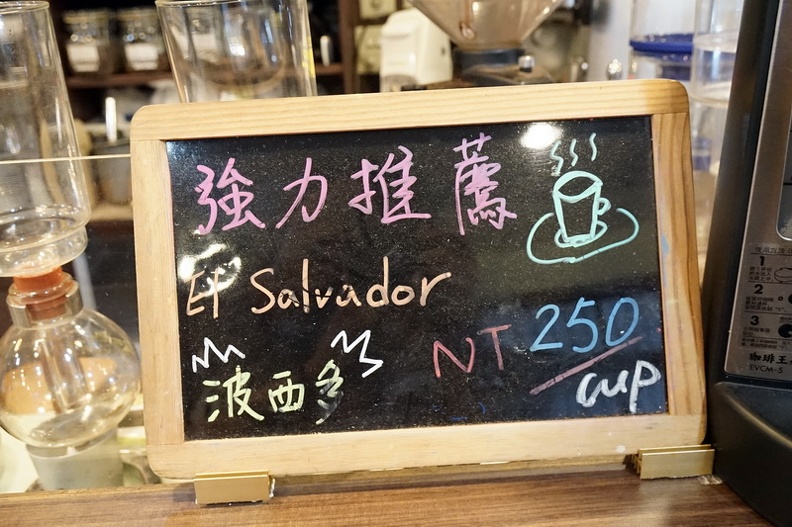 強力推薦
El Salvador
波西多
NT 250
cup
1
2
3
咖啡王
EVCM-5